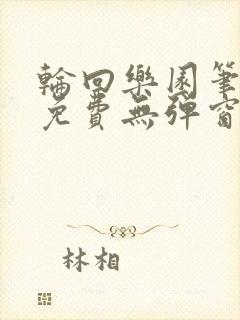 輪回樂園筆
免費無彈窗
林相